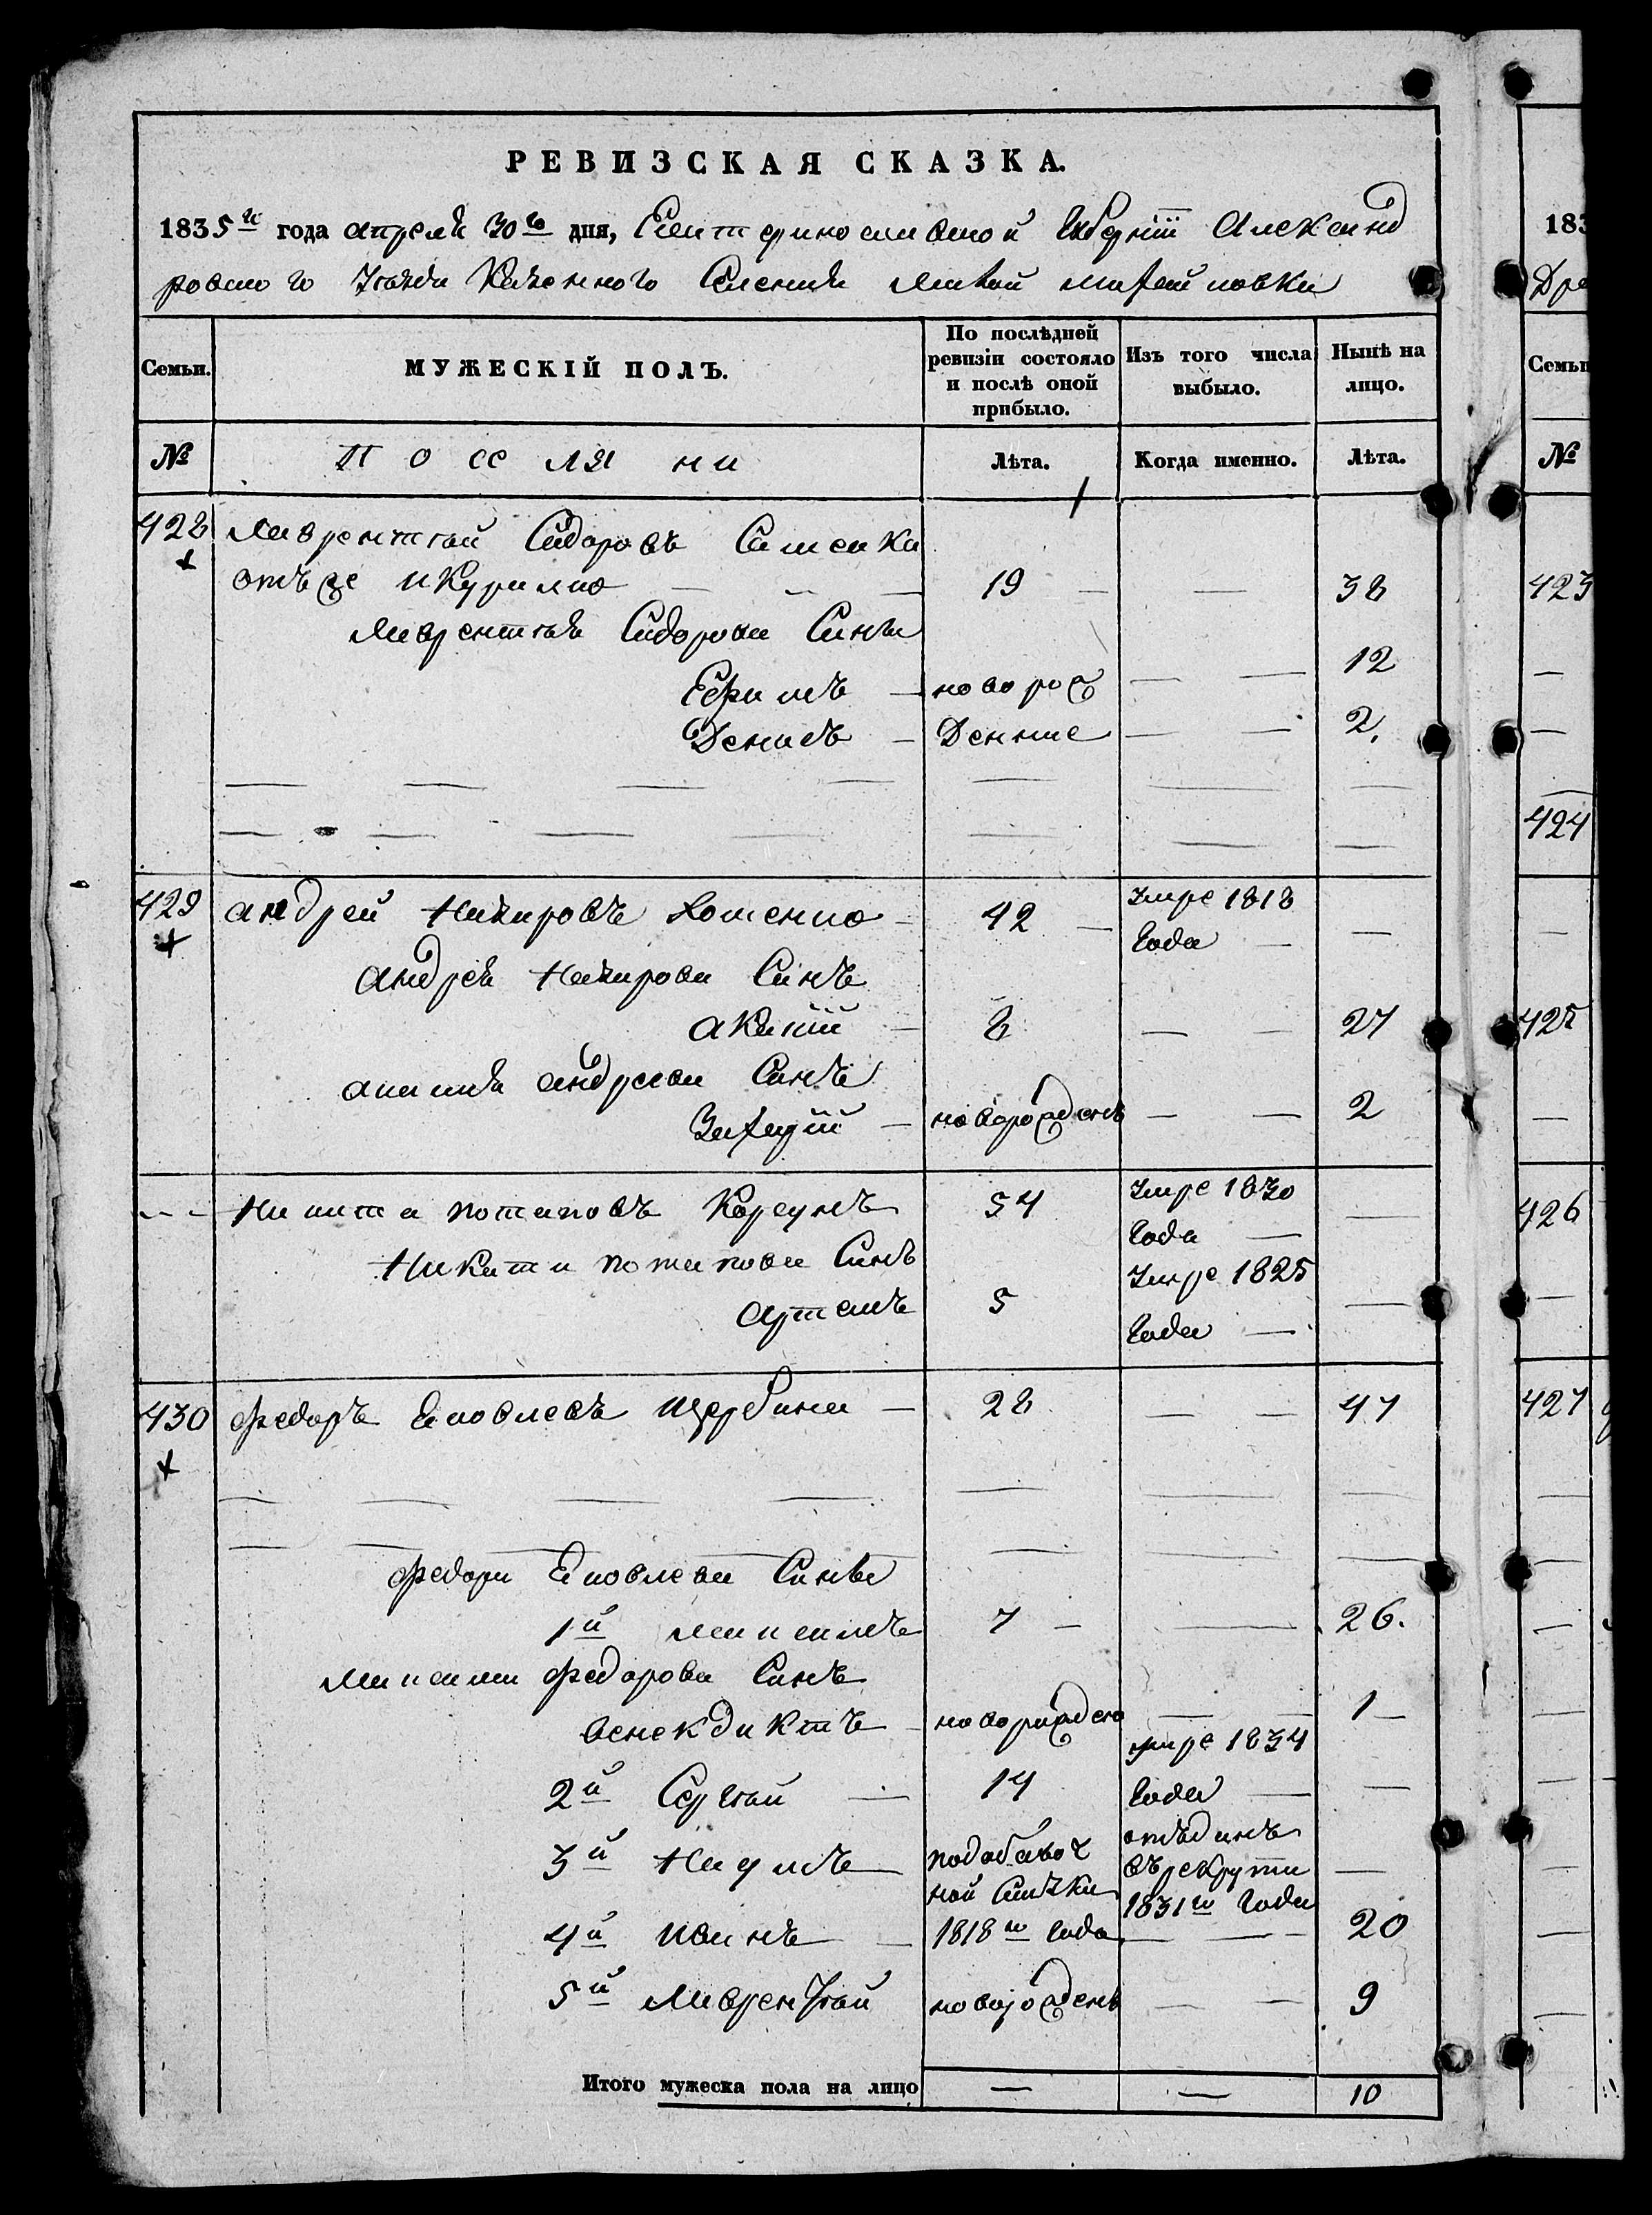 РЕВИЗСКАЯ СКАЗКА.
1835го года апреля 30го дня, Екатеринославской Губернiи Александ
ровского Уезда Казенного Селения Михайловки
Семьи.
МУЖЕСКІЙ ПОЛЪ.
По послѣдней ревизіи состояло и послѣ оной прибыло.
Изъ того числа выбыло.
Нынѣ на лицо.
№
Поселяни
Лѣта.
Когда именно.
Лѣта.
428 Лаврентiй Сидоровъ
онъ же 19 — 38
Лаврентiя Сидорова Сины
Ефимъ — новорож — — 12
Денисъ — денние — — 2.
429 Андрей Назаровъ Хоменко 42 — Умре 1818 —
года —
Андрея Назарова Синъ
Акимъ — 8 — — 27
Акима Андреева Синъ
Захарiй — новорожденъ — — 2
Никита Потаповъ Корсунъ 54 Умре 1830 —
года —
Никити Потапова Синъ Умре 1825
Артемъ 5 года — —
430 Федоръ Яковлевъ Щербина — 28 — — 47
Федора Яковлева Сины
1й Максимъ 7 — — 26.
Максима Федорова Синъ
Венекдиктъ — новорожден — — 1 —
умре 1834
2й Сергѣй — 14 года — —
3й Наумъ — подобавоч отъданъ
ной Скаски въ рекруты —
1831го года
4й Иванъ — 1818го года — — 20
5й Лаврентiй новорожденъ — — 9
Итого мужеска пола на лицо — — 10
183
Дре
Семьи
№
423
424
425
426
427